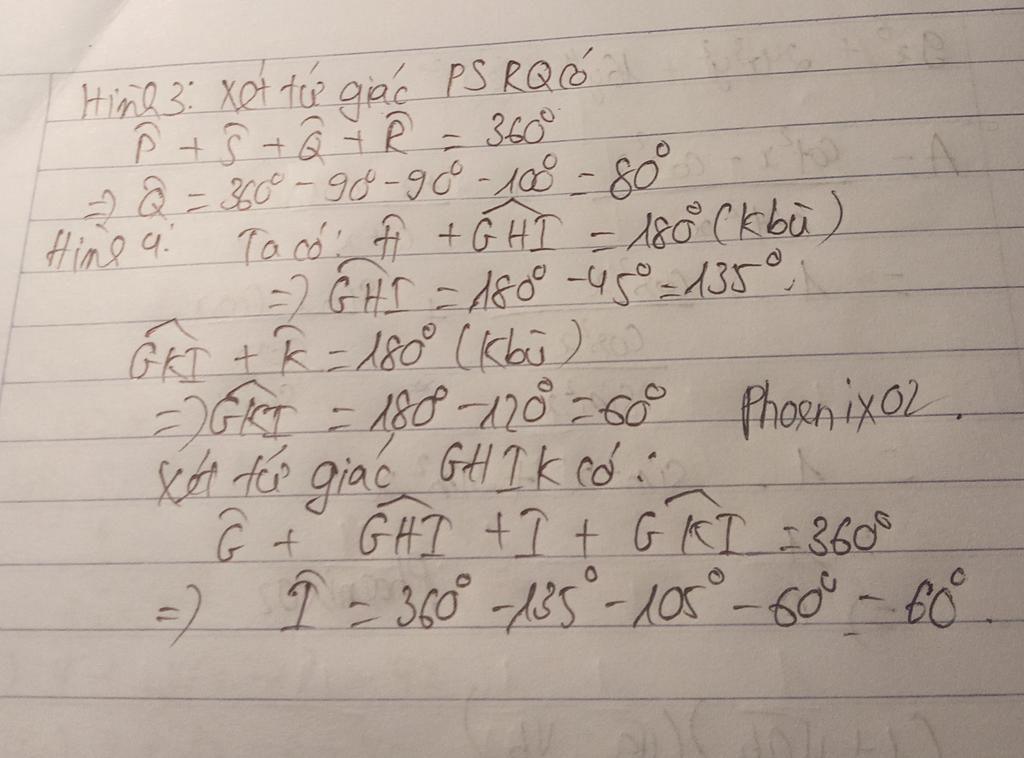 Hình 3: Xét tứ giác PSRQ có
P̂ + Ŝ + Q̂ + R̂ = 360°
=> Q̂ = 360° - 90° - 90° - 100° = 80°
Hình 4: Ta có: Ĥ + GHI = 180° (kbù)
=> GHI = 180° - 45° = 135°.
GKI + K̂ = 180° (kbù)
=> GKI = 180° - 120° = 60° Phoenix02.
Xét tứ giác GHIK có:
Ĝ + GHI + I + GKI = 360°
=> Î = 360° - 135° - 105° - 60° = 60°.